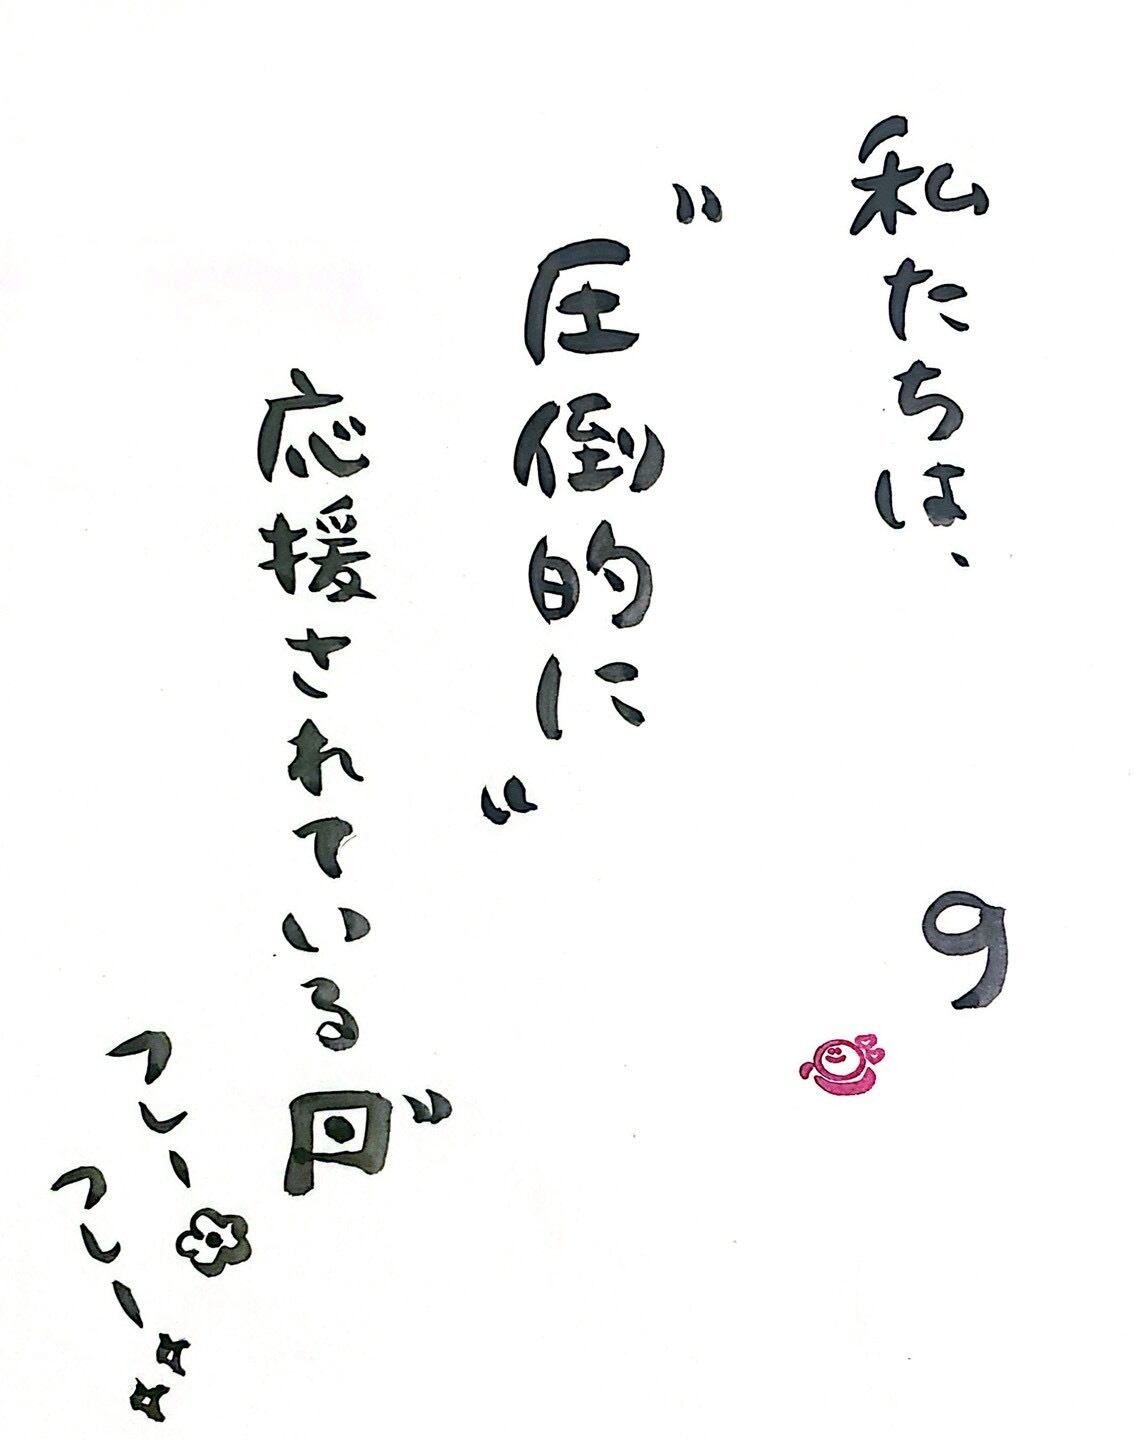 私たちは、
9
〝圧倒的に〟
応援されている
フレー
フレー